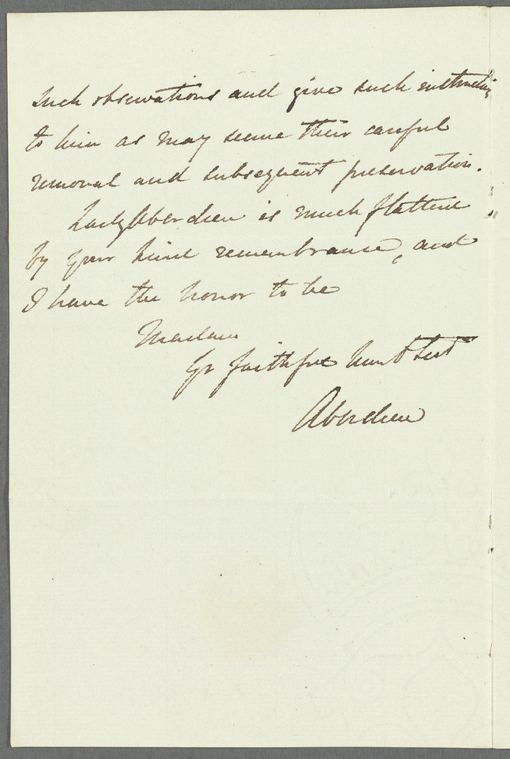 such observations and give such instructions
to him as may secure their careful
removal and subsequent preservation.
Lady Aberdeen is much flattered
by your kind remembrance, and
I have the honor to be
Madam
Yr faithful humb Sert
Aberdeen